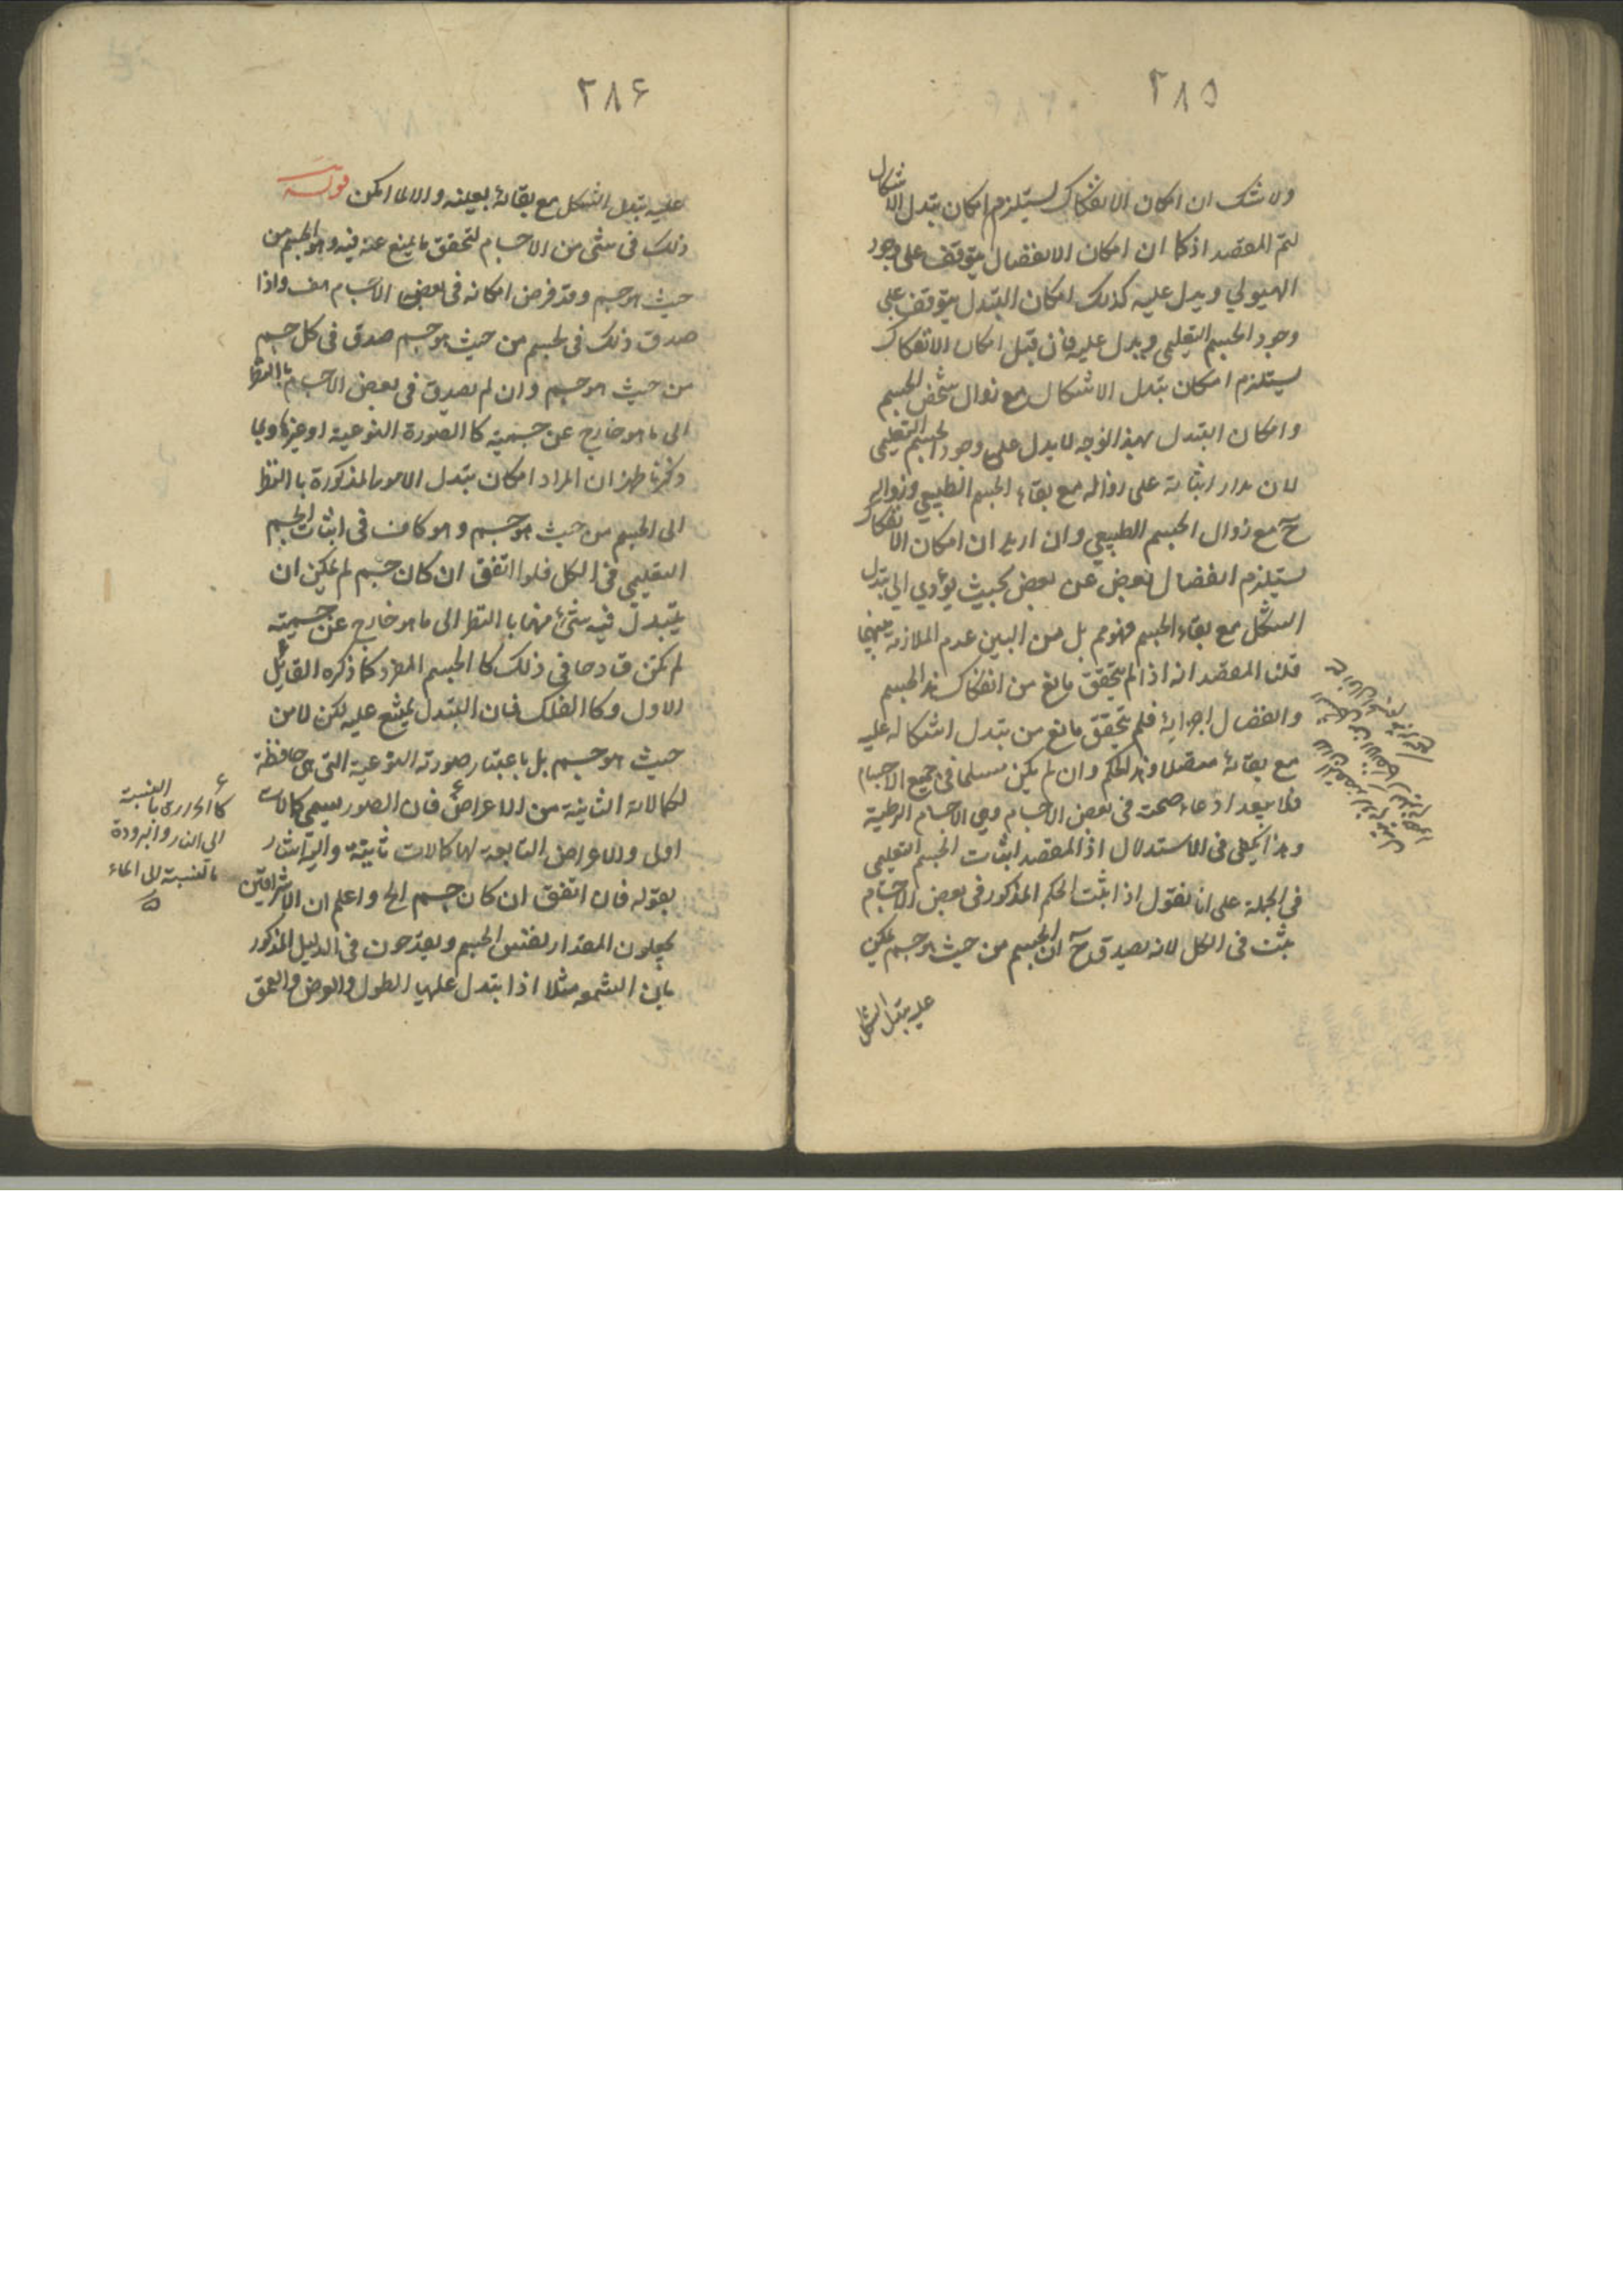 ٢٨٥
ولا شك ان امكان الانفكاك يستلزم امكان تبدل الاشكال
لتم المقصد اذ كما ان امكان الانفصال يتوقف على وجود
الهيولي ويدل عليه كذلك امكان التبدل يتوقف على
وجود الجسم التعليمي ويدل عليه فان قيل امكان الانفكاك
يستلزم امكان تبدل الاشكال مع زوال شخص الجسم
وامكان التبدل بهذا الوجه لا يدل على وجود الجسم التعليمي
لان مدار اثباته على زواله مع بقاء الجسم الطبيعي وزواله
ح مع زوال الجسم الطبيعي وان اريد ان امكان الانفكاك
يستلزم انفصال بعض عن بعض بحيث يؤدي الى تبدل
الشكل مع بقاء الجسم فهو مم بل من البين عدم الملازمة بينهما
قلنا المقصد انه اذا لم يتحقق مانع من انفكاك هذا الجسم
وانفصال اجزايه فلم يتحقق مانع من تبدل اشكاله عليه
مع بقائه متصلا وهذا الحكم وان لم يكن مسلما في جميع الاجسام
فلا يبعد ادعاء صحته في بعض الاجسام وهي الاجسام الرطبة
وهذا يكفي في الاستدلال اذ المقصد اثبات الجسم التعليمي
في الجملة على انا نقول اذا اثبت الحكم المذكور في بعض الاجسام
ثبت في الكل لانه يصدق ح ان الجسم من حيث هو جسم يمكن
عليه تبدل الشكل
٢٨۶
عليه تبدل الشكل مع بقائه بعينه والا لما امكن قوله
ذلك في شئ من الاجسام لتحقق ما يمنع عنه فيه وهو الجسم من
حيث هو جسم وقد فرض امكانه في بعض الاجسام هف واذا
صدق ذلك في الجسم من حيث هو جسم صدق في كل جسم
من حيث هو جسم وان لم يصدق في بعض الاجسام باالنظر
الى ما هو خارج عن جسميته كا الصورة النوعية او غيرها وبما
ذكرنا ظهر ان المراد امكان تبدل الامور المذكورة باالنظر
الى الجسم من حيث هو جسم وهو كاف في اثبات الجسم
التعليمي في الكل فلو اتفق ان كان جسم لم يمكن ان
يتبدل فيه شئ منها باالنظر الى ما هو خارج عن جسميته
لم يكن قادحا في ذلك كا الجسم المفرد كما ذكره القايل
الاول وكا الفلك فان التبدل يمتنع عليه لكن لا من
حيث هو جسم بل باعتبار صورته النوعية التي هى حافظة
لكمالاته الثانية من الاعراض فان الصور يسمى كمالات
اولى والاعراض التابعة لها كمالات ثانية واليه اشار
بقوله فان اتفق ان كان جسم الخ واعلم ان الاشراقيين
يجعلون المقدار نفس الجسم ويقدحون في الدليل المذكور
بان الشمعه مثلا اذا تبدل عليها الطول والعرض والعمق
كا الحرارة باالنسبة
الى النار والبرودة
باالنسبة الى الماء